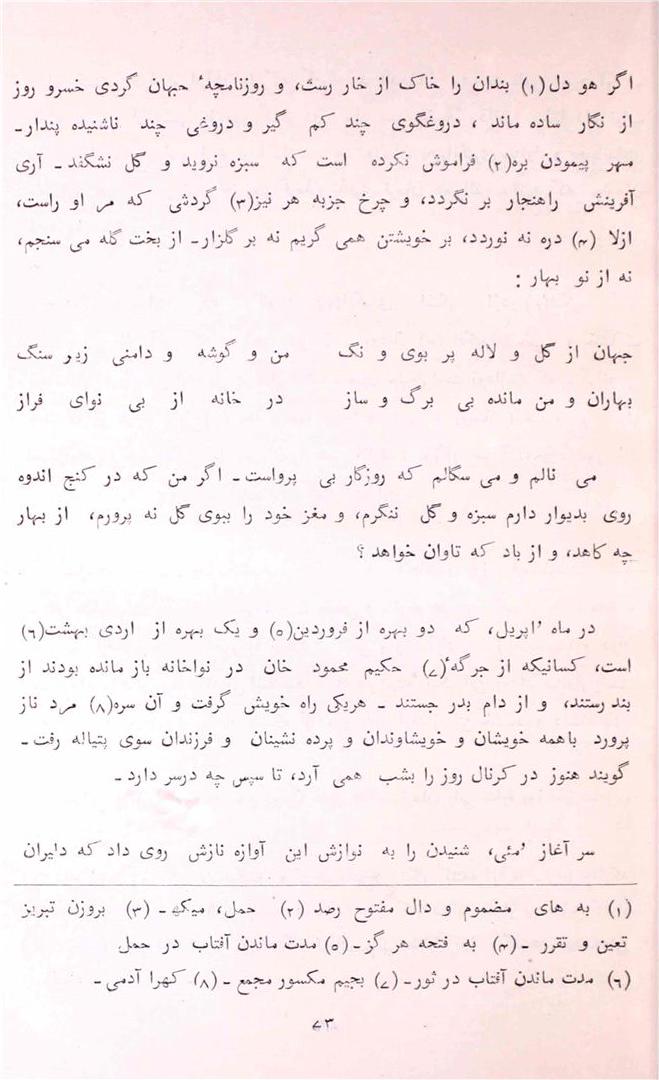 اگر هو دل(۱) بندان را خاک از خار رست، و روزنامچهٴ جهان گردی خسرو روز
از نگار ساده ماند ، دروغگوی چند کم گیر و دروغی چند ناشنیده پندار۔
مهر پیمودن بره(۲) فراموش نکرده است که سبزه نروید و گل نشگفد۔ آری
آفرینش راهنجار بر نگردد، و چرخ جزبه هر نیز(۳) گردشی که مر او راست،
ازلا (۴) دره نه نوردد، بر خویشتن همی گریم نه بر گلزار۔ از بخت گله می سنجم،
نه از نو بهار :
جهان از گل و لاله پر بوی و نگ من و گوشه و دامنی زیر سنگ
بهاران و من مانده بی برگ و ساز در خانه از بی نوای فراز
می نالم و می سگالم که روزگار بی پرواست۔ اگر من که در کنج اندوه
روی بدیوار دارم سبزه و گل ننگرم، و مغز خود را ببوی گل نه پرورم، از بهار
چه کاهد، و از باد که تاوان خواهد ؟
در ماه ’اپریل، که دو بهره از فروردین(۵) و یک بهره از اردی بهشت(۶)
است، کسانیکه از جرگهٴ(۷) حکیم محمود خان در نواخانه باز مانده بودند از
بند رستند، و از دام بدر جستند ۔ هریکی راه خویش گرفت و آن سره(۸) مرد ناز
پرورد باهمه خویشان و خویشاوندان و پرده نشینان و فرزندان سوی پتیاله رفت۔
گویند هنوز در کرنال روز را بشب همی آرد، تا سپس چه درسر دارد۔
سر آغاز ’مئی، شنیدن را به نوازش این آوازه نازش روی داد که دلیران
(۱) به های مضموم و دال مفتوح رصد (۲) حمل، میکھ۔ (۳) بروزن تبریز
تعین و تقرر ۔(۴) به فتحه هر گز۔(۵) مدت ماندن آفتاب در حمل
(۶) مدت ماندن آفتاب در ثور۔ (۷) بجیم مکسور مجمع ۔ (۸) کهرا آدمی۔
۷۳